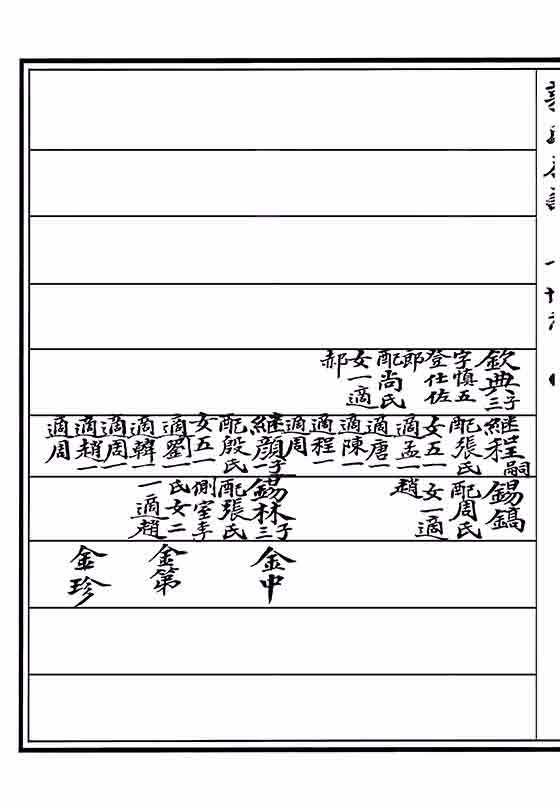 欽典子三
字慎五
登仕佐
郎
配尚氏
女一適
郝
継程嗣
配張氏
女五一
適孟一
適唐一
適陳一
適程一
適周
継顔子一
配殷氏
女五一
適劉一
適韓一
適周一
適趙一
適周
錫鎬
配周氏
女一適
趙
錫林子三
配張氏
側室李
氏女二
一適趙
金中
金第
金珍